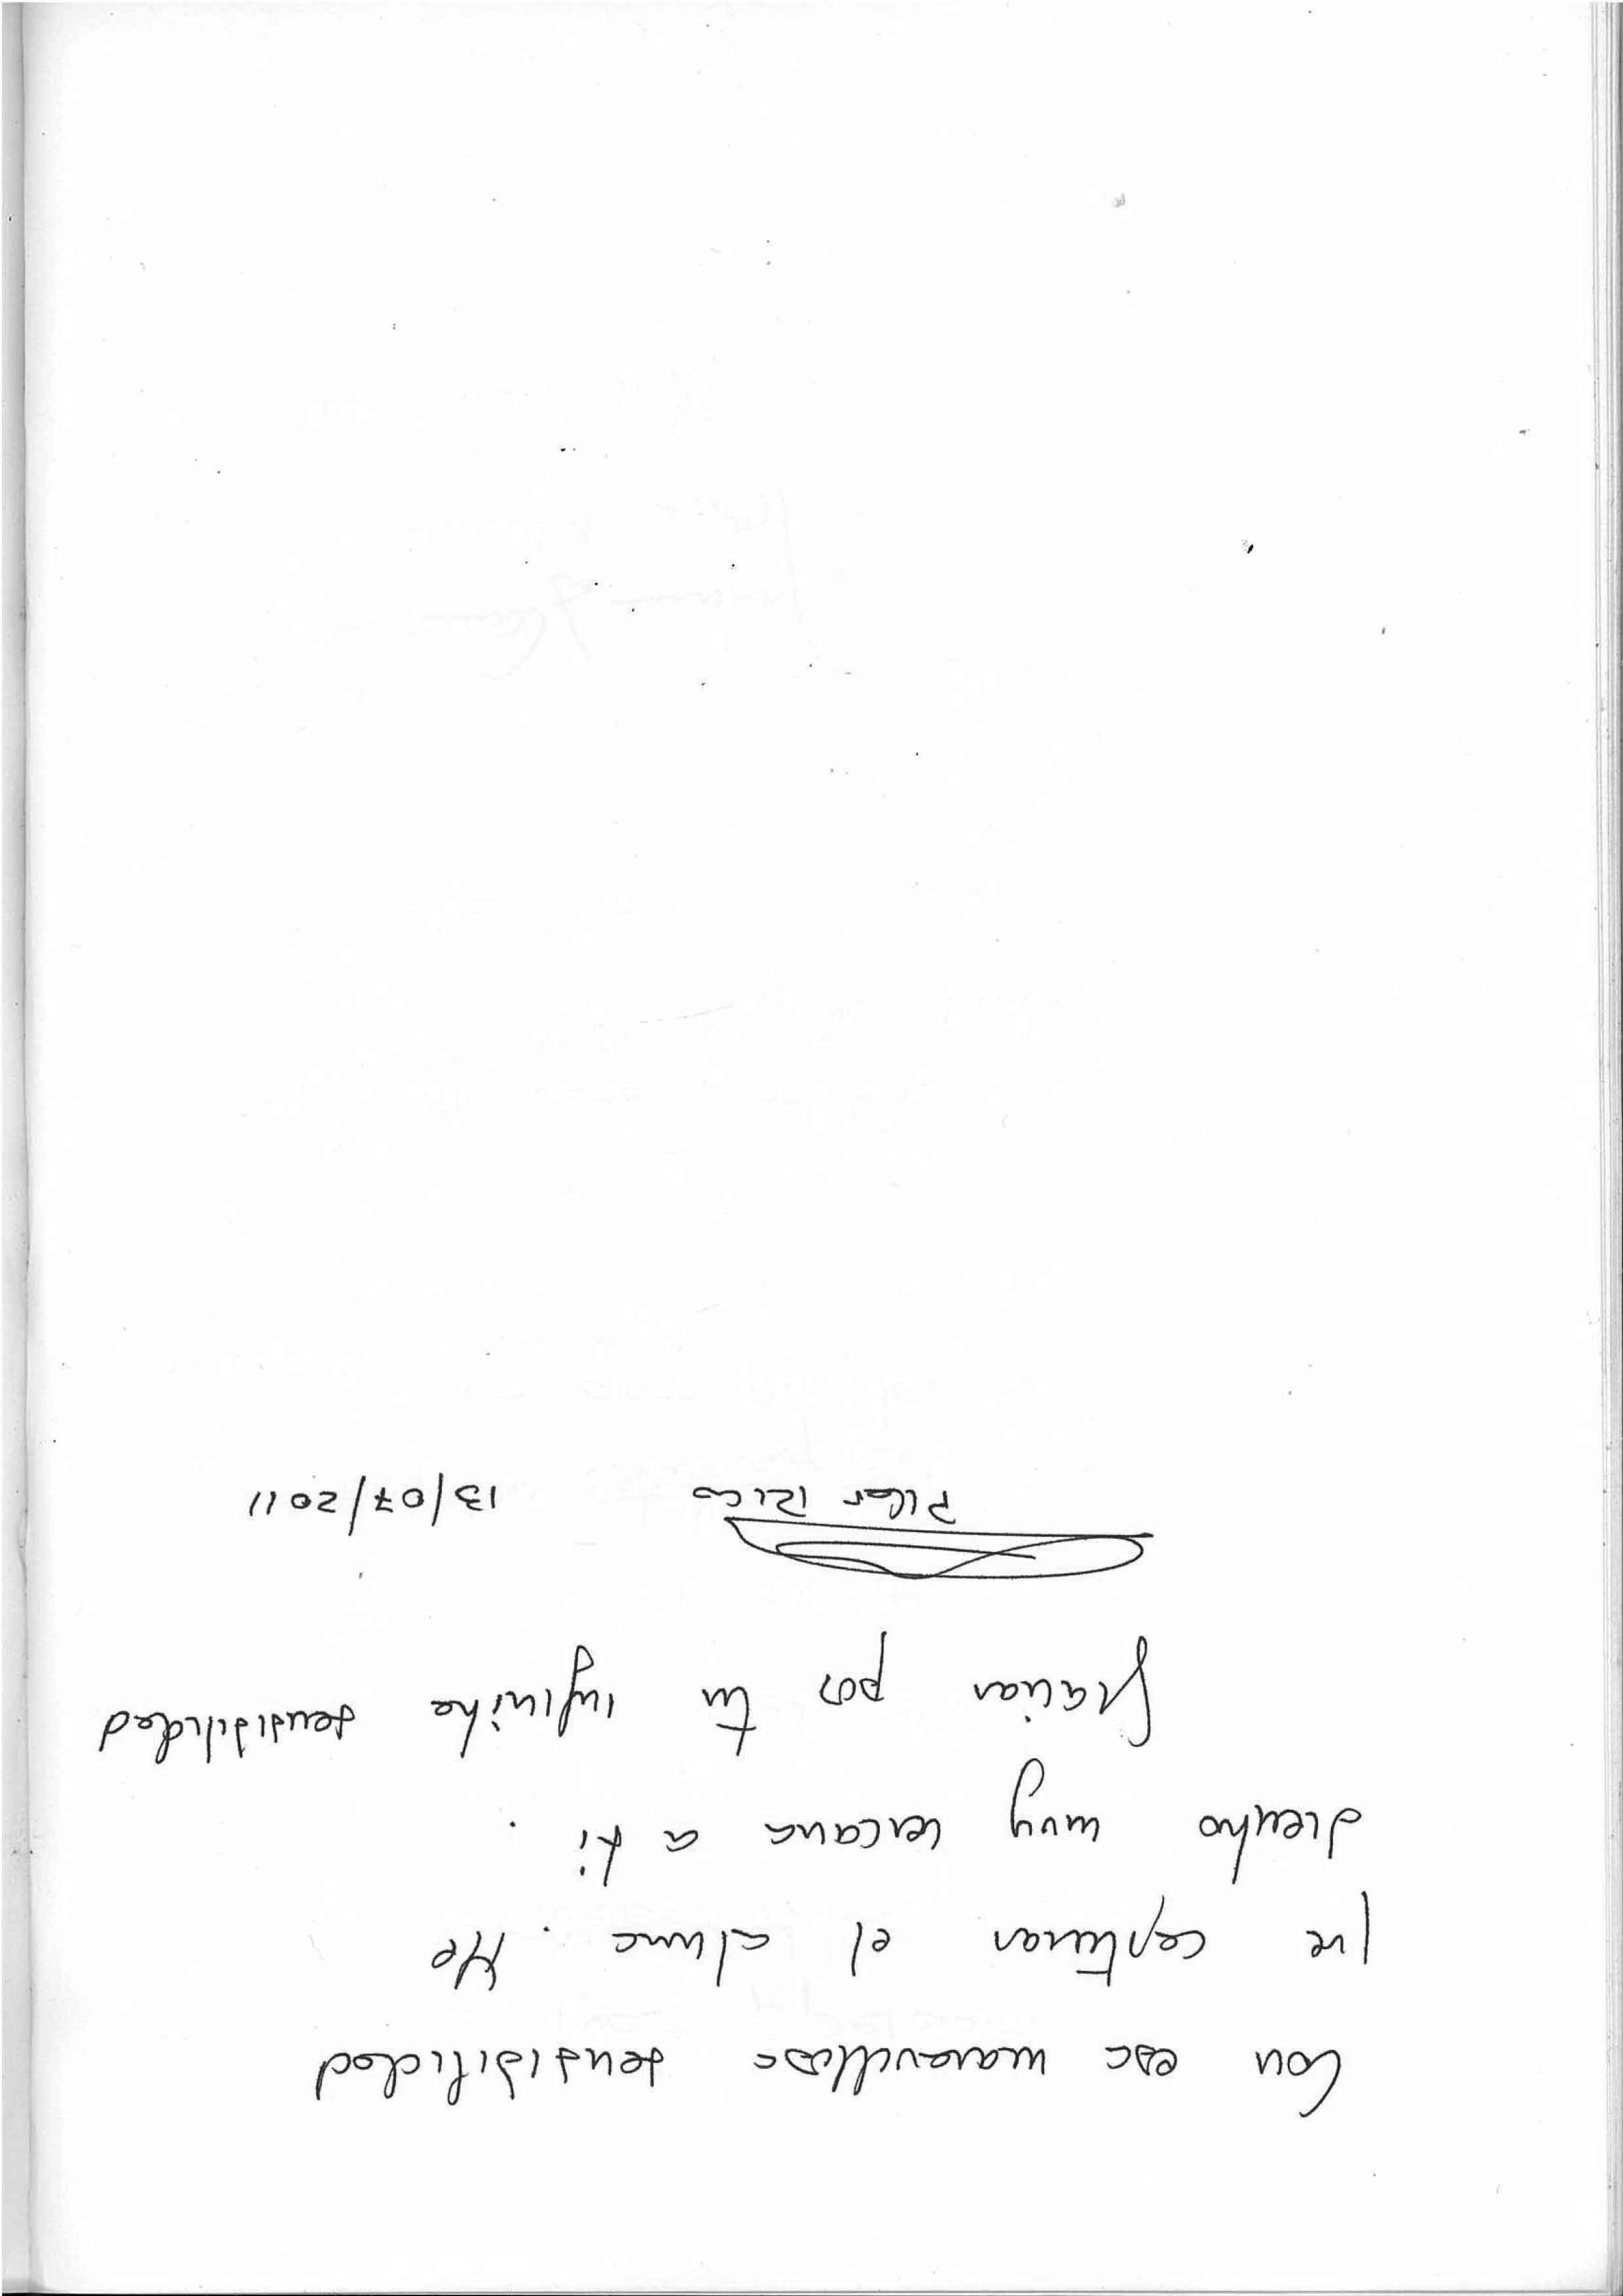 Con esa maravillosa sensibilidad
que capturas el alma. Me
siento muy cercana a ti.
Gracias por tu infinita sensibilidad
Pilar Rico 13/07/2011